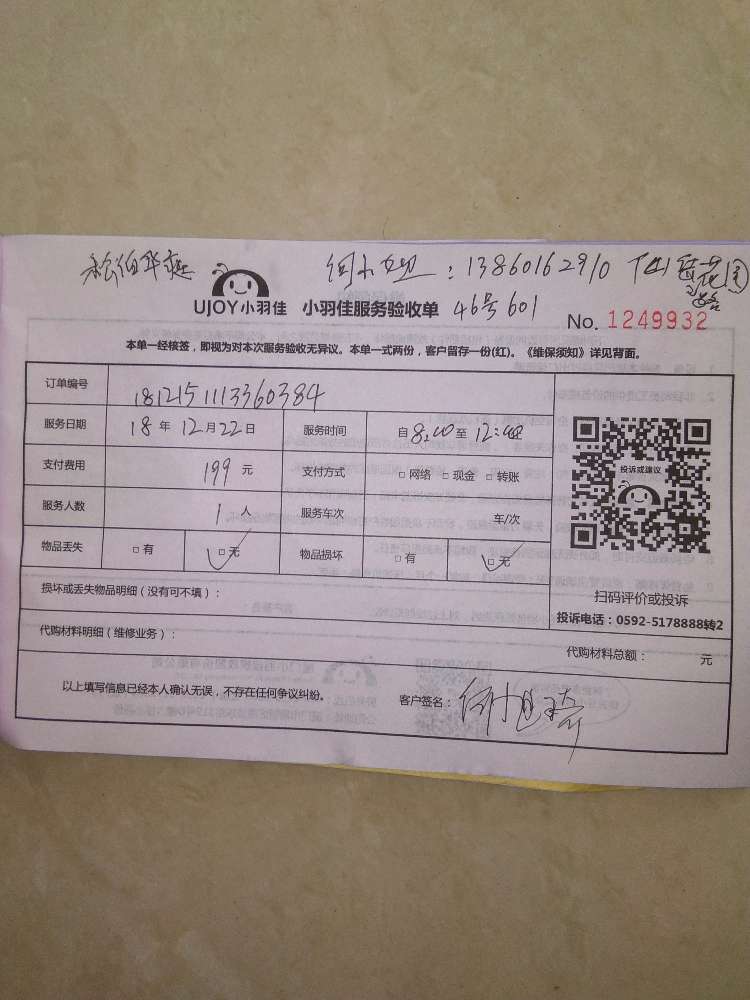 何小姐：13860162910
UJOY小羽佳 小羽佳服务验收单 46号601
No. 1249932
本单一经核签，即视为对本次服务验收无异议。本单一式两份，客户留存一份(红)。《维保须知》详见背面。
订单编号 1812151113360384
服务日期 18 年 12 月 22 日 服务时间 自 8:00 至 12:00
支付费用 199 元 支付方式 □ 网络 □ 现金 □ 转账
服务人数 1 人 服务车次 车/次
物品丢失 □ 有 □ 无 物品损坏 □ 有 □ 无
投诉或建议
扫码评价或投诉
投诉电话：0592-5178888转2
损坏或丢失物品明细（没有可不填）：
代购材料明细（维修业务）：
代购材料总额： 元
以上填写信息已经本人确认无误，不存在任何争议纠纷。 客户签名：